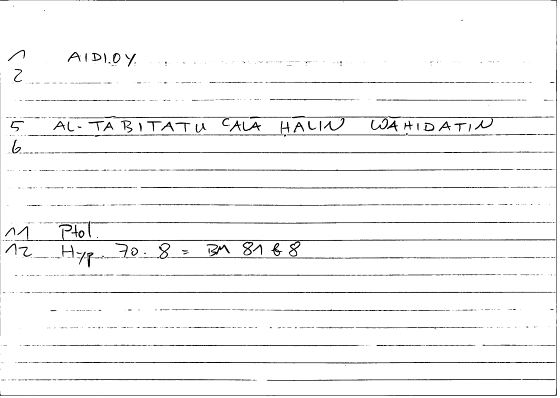 1 AIDIOY
2
5 AL-ṮĀBITATU ʿALĀ ḤĀLIN WĀḤIDATIN
6
11 Ptol.
12 Hyp. 70. 8 = BM 81 b 8